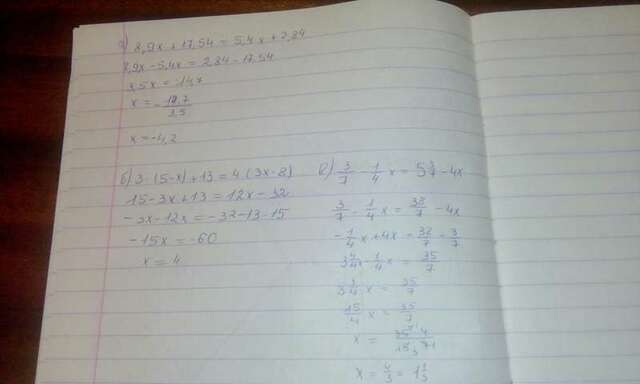 а) 8,9x + 17,54 = 5,4x + 2,84
8,9x - 5,4x = 2,84 - 17,54
3,5x = -14,7
x = - 14,7/3,5
x = -4,2
б) 3·(5-x)+13 = 4·(3x-8)
15-3x+13 = 12x-32
-3x-12x = -32-13-15
-15x = -60
x = 4
в) 3/7 - 1/4 x = 5 3/7 - 4x
3/7 - 1/4 x = 38/7 - 4x
-1/4 x + 4x = 38/7 - 3/7
3 4/4 x - 1/4 x = 35/7
3 3/4 x = 35/7
15/4 x = 35/7
x = 35·4/15·7
x = 4/3 = 1 1/3